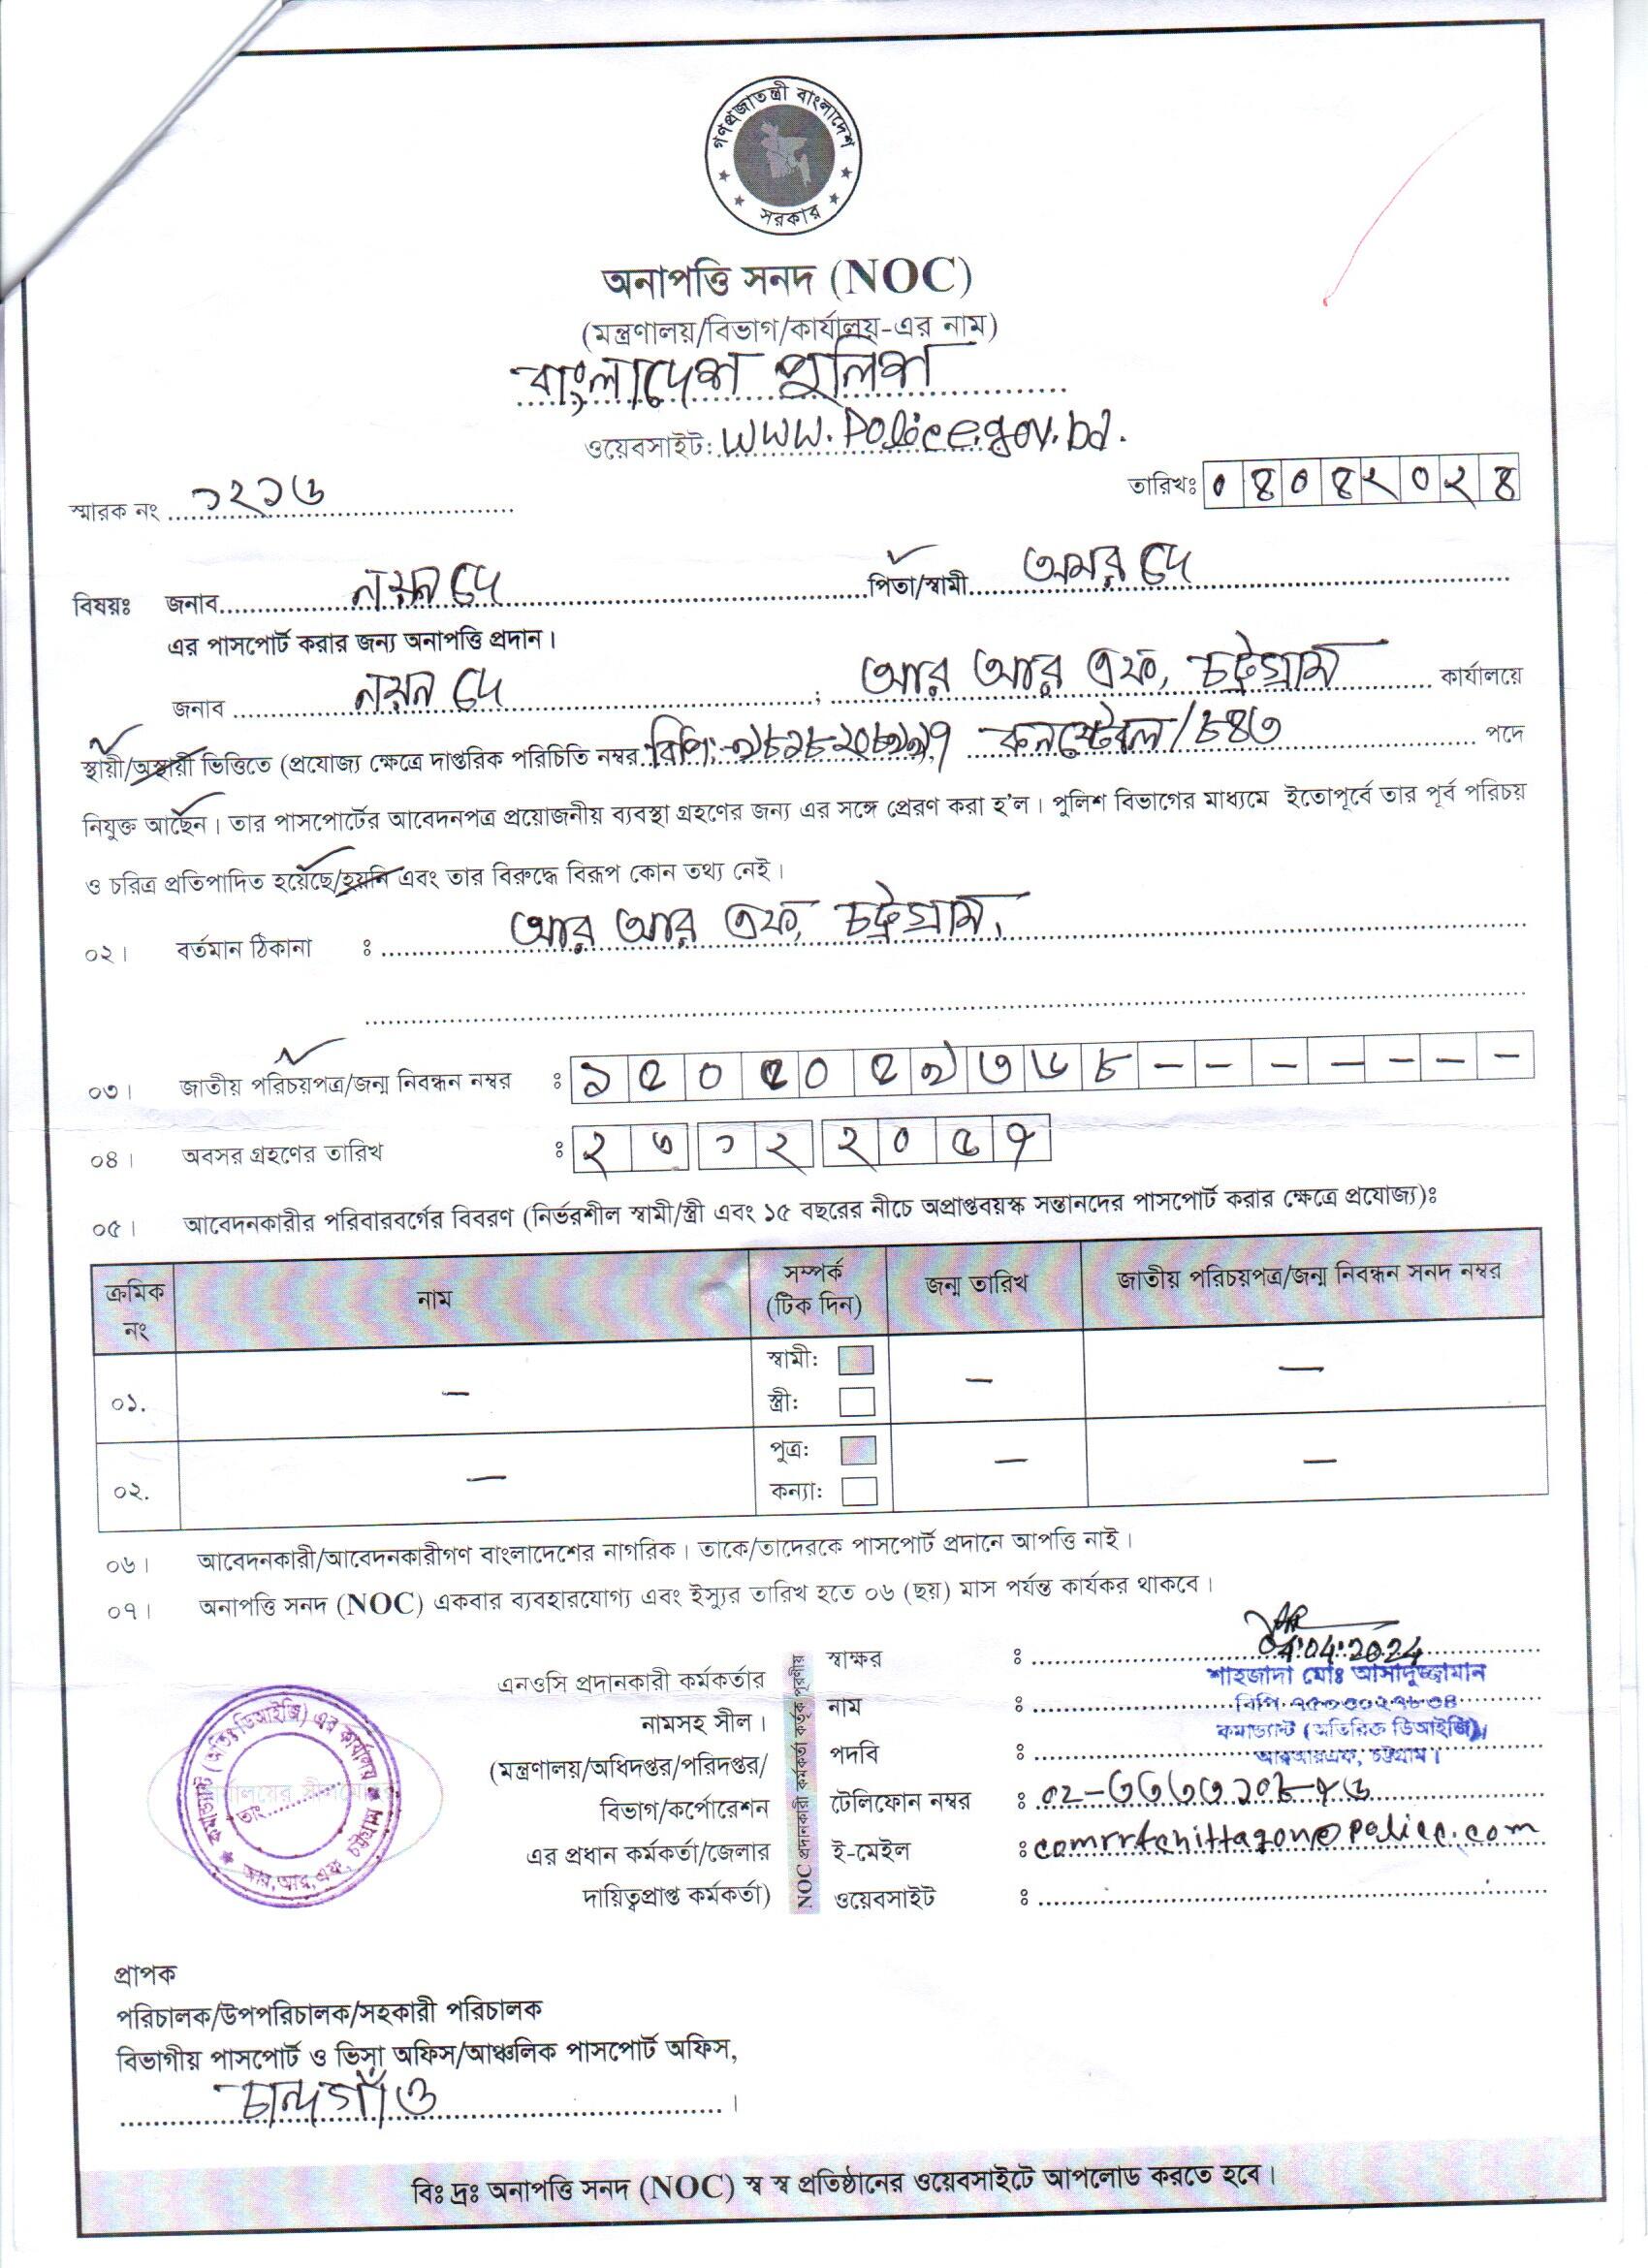 গণপ্রজাতন্ত্রী বাংলাদেশ
সরকার
অনাপত্তি সনদ (NOC)
(মন্ত্রণালয়/বিভাগ/কার্যালয়-এর নাম)
বাংলাদেশ পুলিশ
ওয়েবসাইট: www.police.gov.bd.
স্মারক নং ১২১৬
তারিখঃ ০৪০৪২০২৪
বিষয়ঃ জনাব নয়ন দে পিতা/স্বামী অমর দে
এর পাসপোর্ট করার জন্য অনাপত্তি প্রদান।
জনাব নয়ন দে ; আর আর এফ, চট্টগ্রাম কার্যালয়ে
স্থায়ী/অস্থায়ী ভিত্তিতে (প্রযোজ্য ক্ষেত্রে দাপ্তরিক পরিচিতি নম্বর বিপি: কনস্টেবল/৮৪৩ পদে
নিযুক্ত আছেন। তার পাসপোর্টের আবেদনপত্র প্রয়োজনীয় ব্যবস্থা গ্রহণের জন্য এর সঙ্গে প্রেরণ করা হ'ল। পুলিশ বিভাগের মাধ্যমে ইতোপূর্বে তার পূর্ব পরিচয়
ও চরিত্র প্রতিপাদিত হয়েছে/হয়নি এবং তার বিরুদ্ধে বিরূপ কোন তথ্য নেই।
০২। বর্তমান ঠিকানা ঃ আর আর এফ, চট্টগ্রাম,
০৩। জাতীয় পরিচয়পত্র/জন্ম নিবন্ধন নম্বর ঃ ১৫০৫০৫৯৩৬৮-------
০৪। অবসর গ্রহণের তারিখ ঃ ২৩১২২০৫৭
০৫। আবেদনকারীর পরিবারবর্গের বিবরণ (নির্ভরশীল স্বামী/স্ত্রী এবং ১৫ বছরের নীচে অপ্রাপ্তবয়স্ক সন্তানদের পাসপোর্ট করার ক্ষেত্রে প্রযোজ্য)ঃ
ক্রমিক নং নাম সম্পর্ক (টিক দিন) জন্ম তারিখ জাতীয় পরিচয়পত্র/জন্ম নিবন্ধন সনদ নম্বর
০১. – স্বামী: – –
স্ত্রী:
০২. – পুত্র: – –
কন্যা:
০৬। আবেদনকারী/আবেদনকারীগণ বাংলাদেশের নাগরিক। তাকে/তাদেরকে পাসপোর্ট প্রদানে আপত্তি নাই।
০৭। অনাপত্তি সনদ (NOC) একবার ব্যবহারযোগ্য এবং ইস্যুর তারিখ হতে ০৬ (ছয়) মাস পর্যন্ত কার্যকর থাকবে।
এনওসি প্রদানকারী কর্মকর্তার
নামসহ সীল।
(মন্ত্রণালয়/অধিদপ্তর/পরিদপ্তর/
বিভাগ/কর্পোরেশন
এর প্রধান কর্মকর্তা/জেলার
দায়িত্বপ্রাপ্ত কর্মকর্তা)
NOC প্রদানকারী কর্মকর্তা কর্তৃক পূরণীয়
স্বাক্ষর ঃ 04.04.2024
শাহজাদা মোঃ আসাদুজ্জামান
নাম ঃ
পদবি ঃ কমান্ড্যান্ট (অতিরিক্ত ডিআইজি)
আরআরএফ, চট্টগ্রাম।
টেলিফোন নম্বর ঃ
ই-মেইল ঃ
ওয়েবসাইট ঃ
কমান্ড্যান্ট (অতিঃ ডিআইজি) এর কার্যালয়
তাং
আর, আর, এফ, চট্টগ্রাম
প্রাপক
পরিচালক/উপপরিচালক/সহকারী পরিচালক
বিভাগীয় পাসপোর্ট ও ভিসা অফিস/আঞ্চলিক পাসপোর্ট অফিস,
চান্দগাঁও।
বিঃ দ্রঃ অনাপত্তি সনদ (NOC) স্ব স্ব প্রতিষ্ঠানের ওয়েবসাইটে আপলোড করতে হবে।